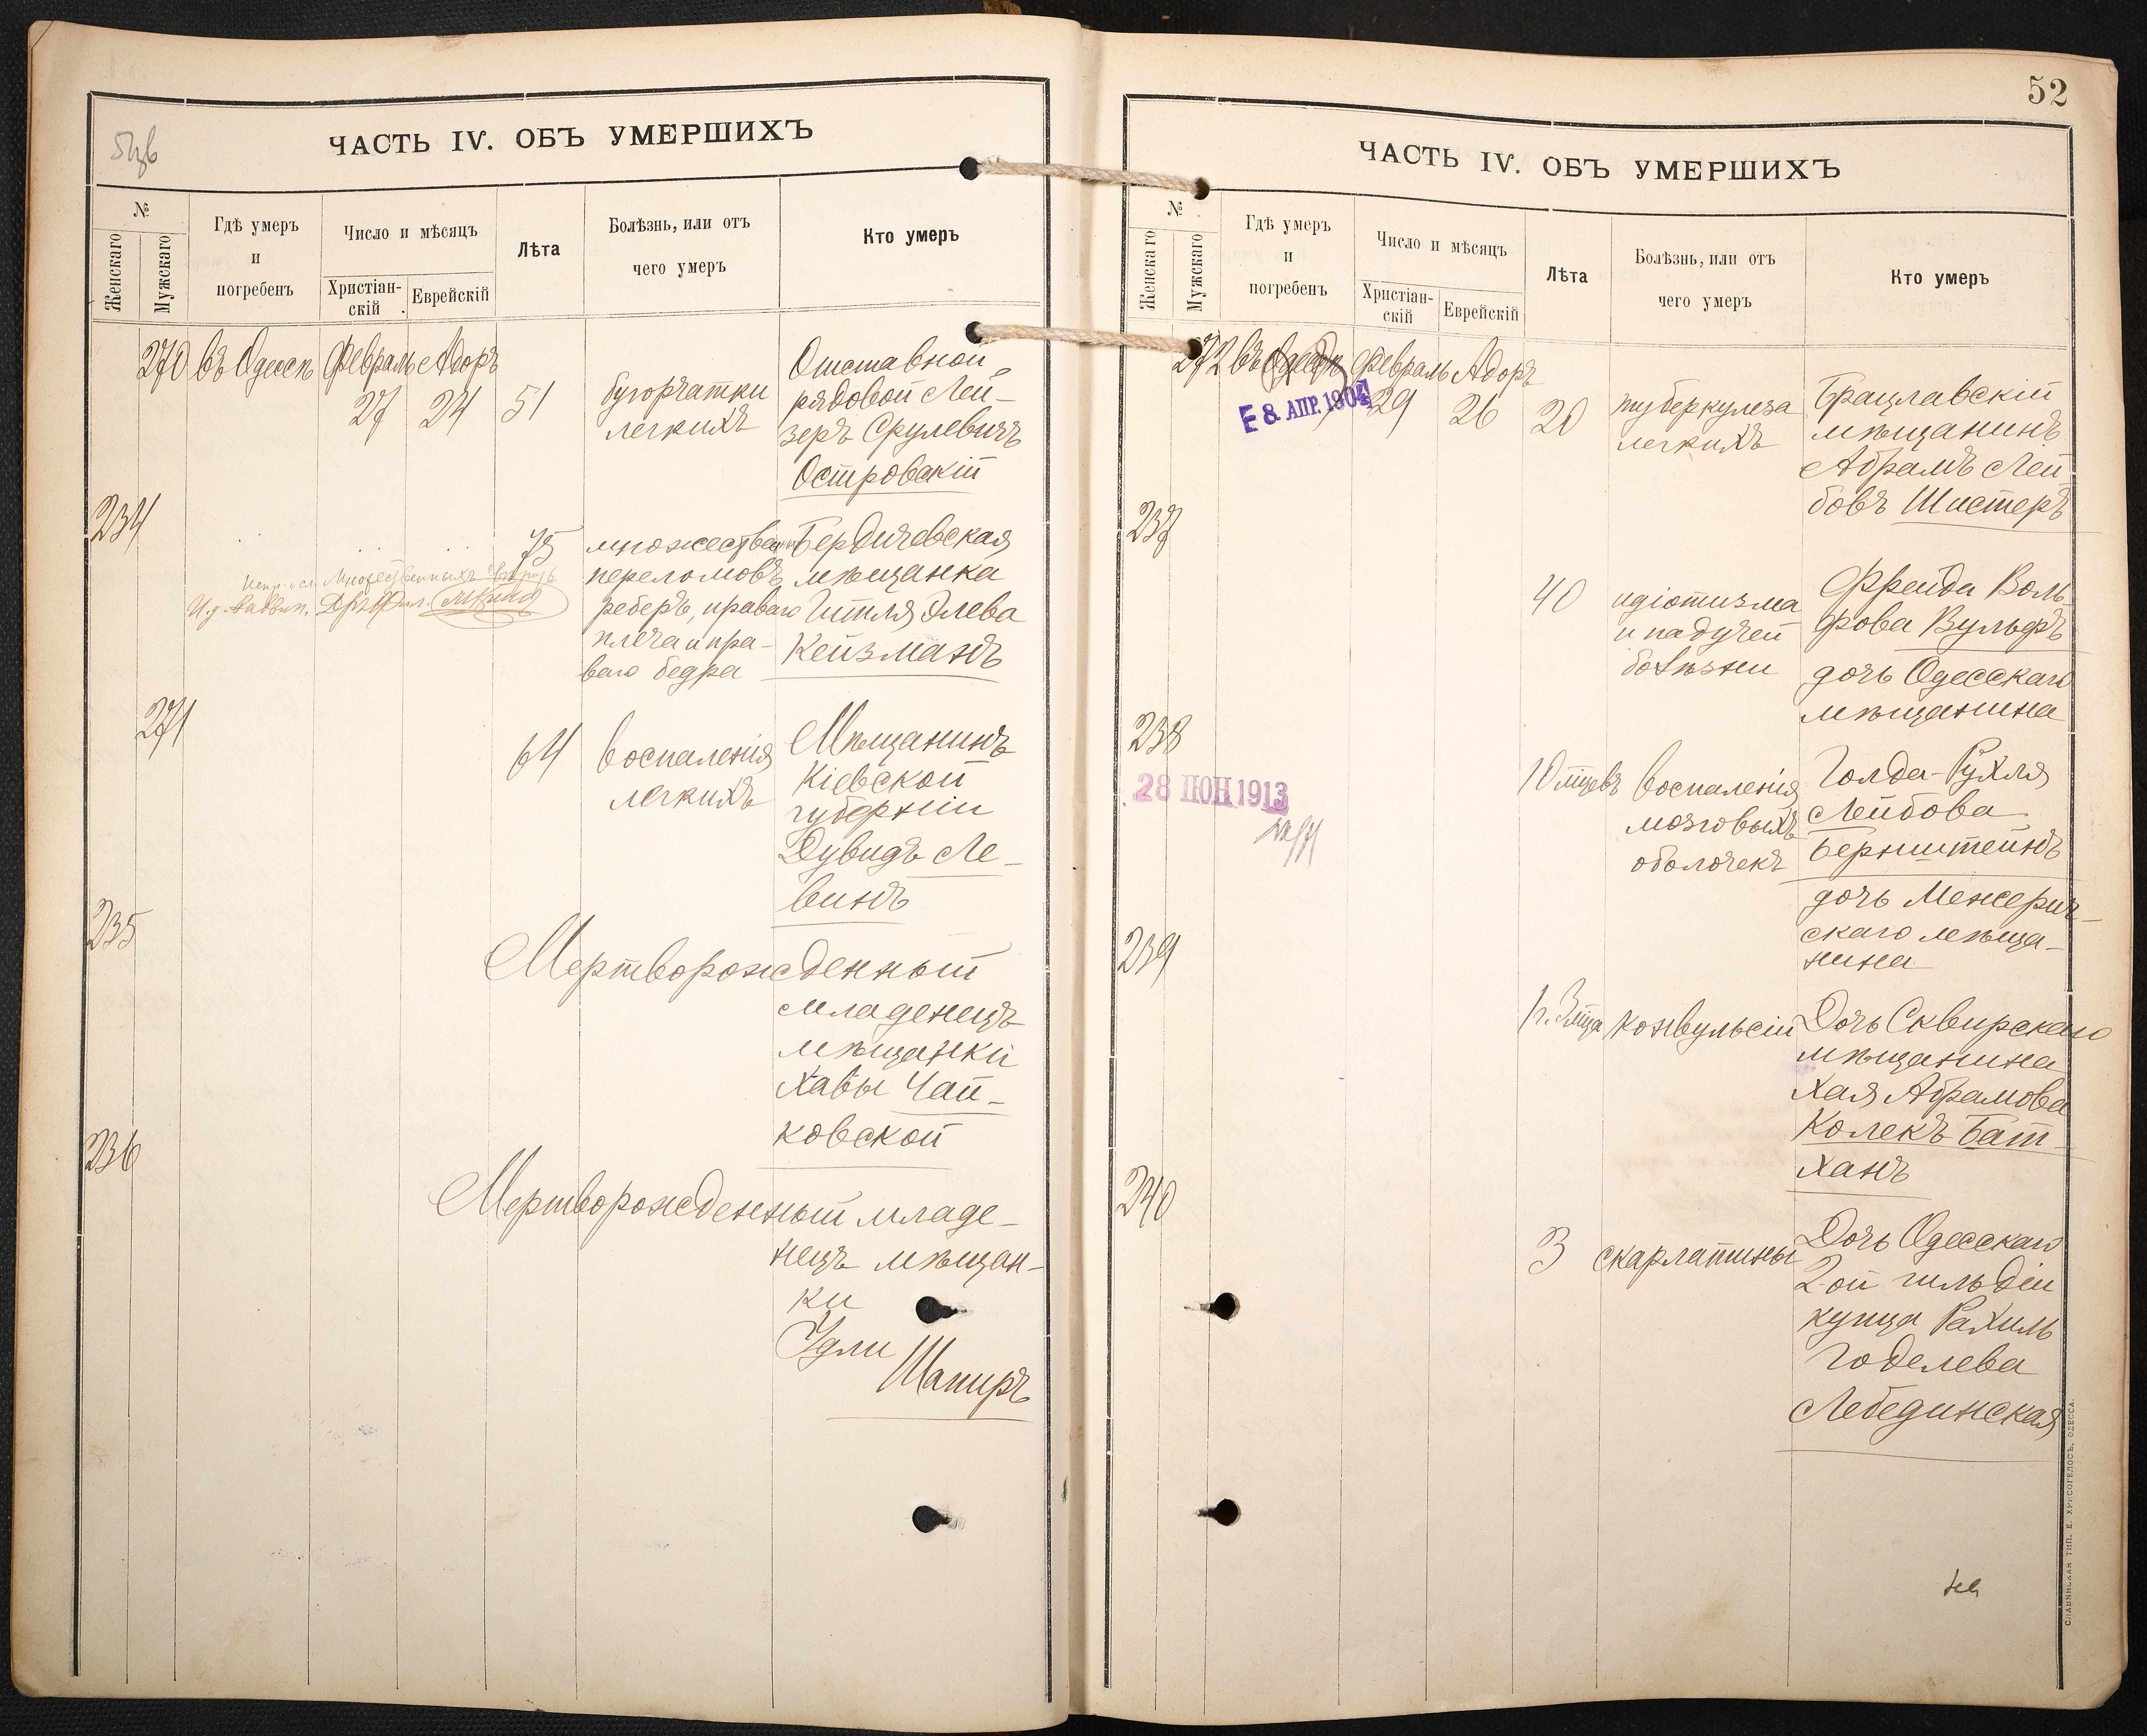 ЧАСТЬ IV. ОБЪ УМЕРШИХЪ
№
Женскаго
Мужскаго
Гдѣ умеръ
и
погребенъ
Число и мѣсяцъ
Христіан-
скій
Еврейскій
Лѣта
Болѣзнь, или отъ
чего умеръ
Кто умеръ
270 въ Одессѣ Февраль Адоръ
27 24 51
бугорчатки
легкихъ
Отставной
рядовой Лей-
зеръ Срулевичъ
Островскій
234
75
множествен
переломовъ
реберъ, праваго
плеча и пра-
ваго бедра
Бердичевская
мѣщанка
Гитля Элева
Кейзманъ
271
64
воспаленія
легкихъ
Мѣщанинъ
Кіевской
губерніи
Дувидъ Ле-
винъ
235
Мертворожденный
младенецъ
мѣщанки
Хавы Чай-
ковской
236
Мертворожденный младе-
нецъ мѣщан-
ки
Удли
Шапиръ
52
ЧАСТЬ IV. ОБЪ УМЕРШИХЪ
№
Женскаго
Мужскаго
Гдѣ умеръ
и
погребенъ
Число и мѣсяцъ
Христіан-
скій
Еврейскій
Лѣта
Болѣзнь, или отъ
чего умеръ
Кто умеръ
272 въ Одессѣ Февраль Адоръ
8 АПР. 1904
29 26 20
туберкулеза
легкихъ
Брацлавскій
мѣщанинъ
Абрамъ Лей
бовъ Шистеръ
237
40
идіотизма
и падучей
болѣзни
Фрейда Воль-
фова Вульфъ
дочь Одесскаго
мѣщанина
238
28 ІЮН 1913
10 мцевъ
воспаленія
мозговыхъ
оболочекъ
Голда-Рухля
Лейбова
Бернштейнъ
дочь Межерич-
скаго мѣща-
нина
239
1 г. 3 мца
конвульсіи
Дочь Сквирскаго
мѣщанина
Хая Абрамова
Колекъ Бат-
ханъ
240
3
скарлатины
Дочь Одесскаго
2-ой гильдіи
купца Рахиль
Годелева
Лебединская
СЛАВЯНСКАЯ ТИП. Е. ХРИСОГЕЛОСЪ, ОДЕССА.